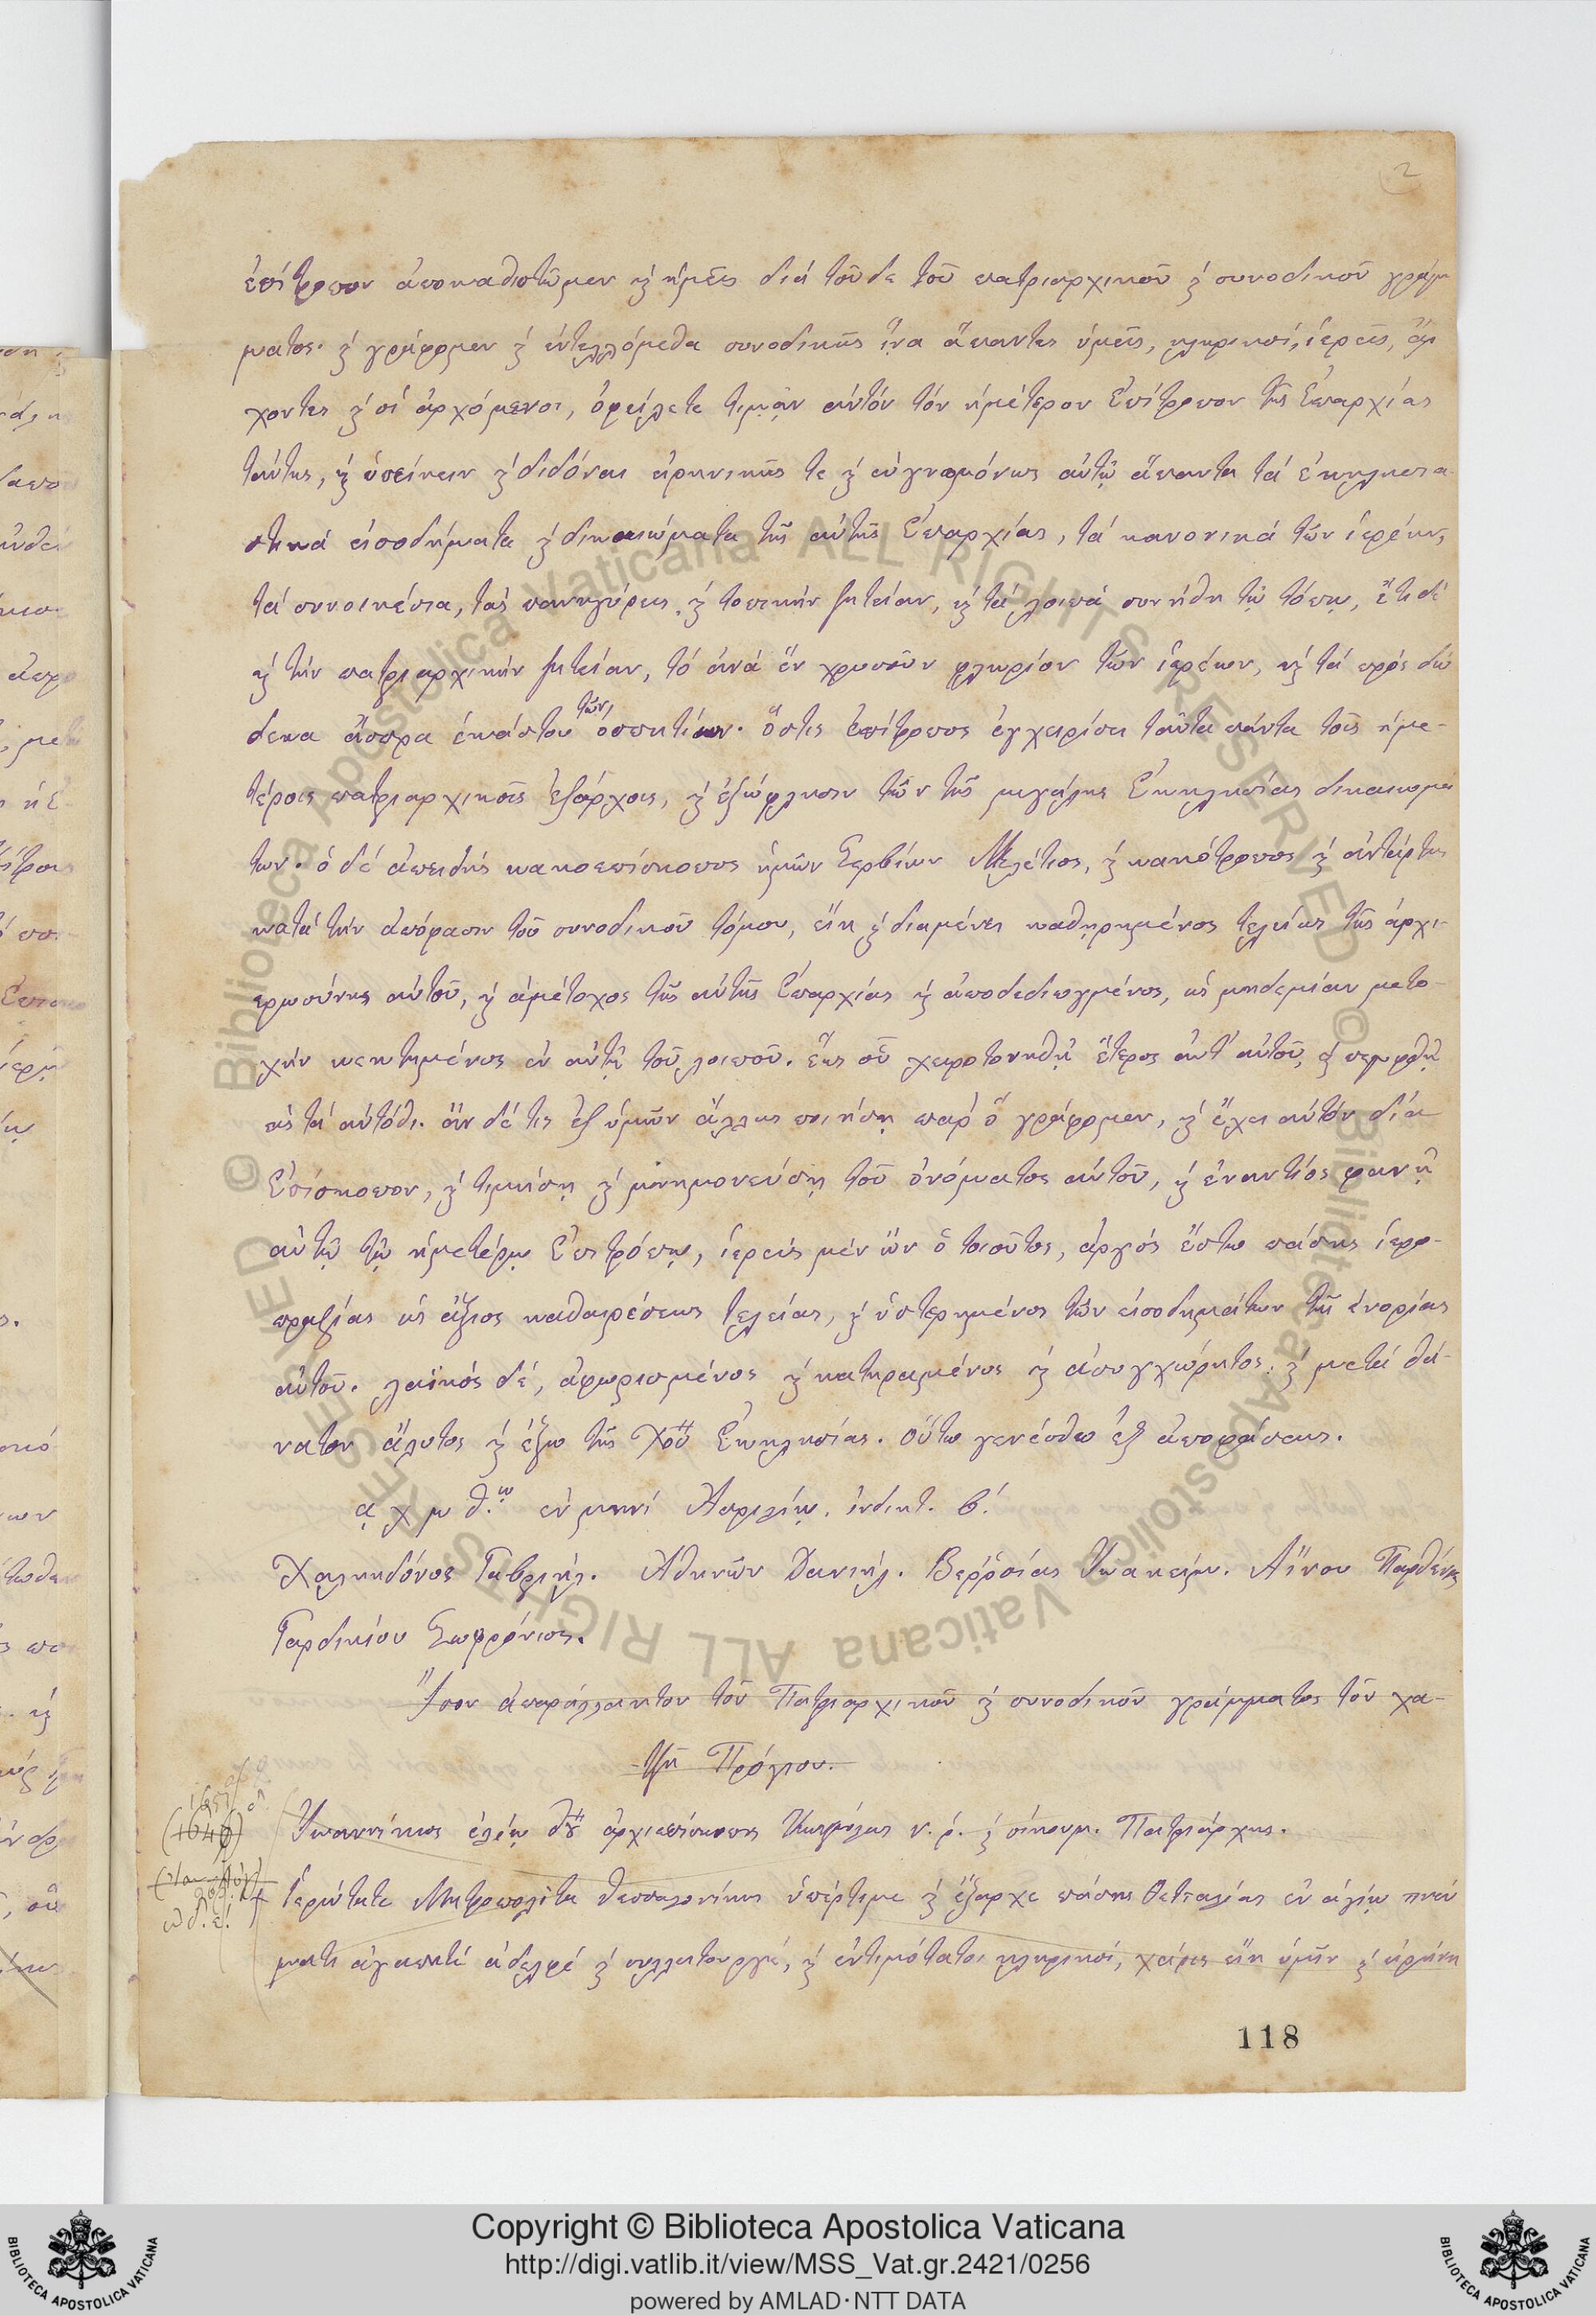 2
ἐπίτροπον ἀποκαθιστῶμεν ϗ ἡμεῖς διὰ τοῦδε τοῦ πατριαρχικοῦ ϗ συνοδικοῦ γράμ
ματος. ϗ γράφομεν ϗ ἐντελλόμεθα συνοδικῶς ἵνα ἅπαντες ὑμεῖς, κληρικοί, ἱερεῖς, ἄρ
χοντες ϗ οἱ ἀρχόμενοι, ὀφείλετε τιμᾷν αὐτὸν τὸν ἡμέτερον Ἐπίτροπον τῆς Ἐπαρχίας
ταύτης, ϗ ὑπείκειν ϗ διδόναι εἰρηνικῶς τε ϗ εὐγνωμόνως αὐτῷ ἅπαντα τὰ ἐκκλησια
στικά εἰσοδήματα ϗ δικαιώματα τῆς αὐτῆς Ἐπαρχίας, τὰ κανονικά τῶν ἱερέων,
τὰ συνοικέσια, τὰς πανηγύρεις, ϗ τοπικὴν ζητείαν, ϗ τὰ λοιπὰ συνήθη τῷ τόπῳ, ἔτι δὲ
ϗ τὴν πατριαρχικὴν ζητείαν, τὸ ἀνὰ ἓν χρυσοῦν φλωρίον τῶν ἱερέων, ϗ τὰ πρὸς δώ
δεκα ἄσπρα ἑκάστου τῶν ὁσπητίων. ὅστις Ἐπίτροπος ἐγχειρίσει ταῦτα πάντα τοῖς ἡμε-
τέροις πατριαρχικοῖς ἐξάρχοις, ϗ ἐξώφλησιν τῶν τῆς μεγάλης Ἐκκλησίας δικαιωμά
των. ὁ δὲ ἀπειθὴς κακοεπίσκοπος ἡμῶν Σερβίων Μελέτιος, ϗ κακότροπος ϗ ἀντάρτης
κατὰ τὴν ἀπόφασιν τοῦ συνοδικοῦ τόμου, εἴη ϗ διαμένει καθῃρημένος τελείως τῆς ἀρχι-
ερωσύνης αὐτοῦ, ϗ ἀμέτοχος τῆς αὐτῆς Ἐπαρχίας ϗ ἀποδεδιωγμένος, ὡς μηδεμίαν μετο-
χὴν κεκτημένος ἐν αὐτῇ τοῦ λοιποῦ. ἕως οὗ χειροτονηθῇ ἕτερος ἀντ' αὐτοῦ, ϗ πεμφθῇ
εἰς τὰ αὐτόθι. ἂν δέ τις ἐξ ὑμῶν ἄλλως ποιήσῃ παρ' ὃ γράφομεν, ϗ ἔχει αὐτὸν διὰ
Ἐπίσκοπον, ϗ τιμήσῃ ϗ μνημονεύσῃ τοῦ ὀνόματος αὐτοῦ, ϗ ἐναντίος φανῇ
αὐτῷ τῷ ἡμετέρῳ Ἐπιτρόπῳ, ἱερεὺς μὲν ὢν ὁ τοιοῦτος, ἀργὸς ἔστω πάσης ἱερο-
πραξίας ὡς ἄξιος καθαιρέσεως τελείας, ϗ ὑστερημένος τῶν εἰσοδημάτων τῆς ἐνορίας
αὐτοῦ. λαϊκὸς δέ, ἀφωρισμένος ϗ κατηραμένος ϗ ἀσυγχώρητος. ϗ μετὰ θά-
νατον ἄλυτος ϗ ἔξω τῆς Χοῦ Ἐκκλησίας. οὕτω γενέσθω ἐξ ἀποφάσεως.
αχμθ.ῳ ἐν μηνὶ Ἀπριλίῳ. ἰνδικτ. β΄.
Χαλκηδόνος Γαβριήλ. Ἀθηνῶν Δανιήλ. Βεῤῥοίας Ἰωακείμ. Αἴνου Παρθένιος
Γαρδικίου Σωφρόνιος.
Ἴσον ἀπαράλλακτον τοῦ Πατριαρχικοῦ ϗ συνοδικοῦ γράμματος τοῦ χα-
τζῆ Πρόγιου.
Ἰωαννίκιος ἐλέῳ θῦ ἀρχιεπίσκοπος Κωνπόλεως ν. ῥ. ϗ οἰκουμ. Πατριάρχης.
Ἱερώτατε Μητροπολῖτα Θεσσαλονίκης ὑπέρτιμε ϗ ἔξαρχε πάσης Θετταλίας ἐν ἁγίῳ πνεύ
ματι ἀγαπητὲ ἀδελφὲ ϗ συλλειτουργέ, ϗ ἐντιμότατοι κληρικοί, χάρις εἴη ὑμῖν ϗ εἰρήνη
118
Copyright © Biblioteca Apostolica Vaticana
http://digi.vatlib.it/view/MSS_Vat.gr.2421/0256
powered by AMLAD·NTT DATA